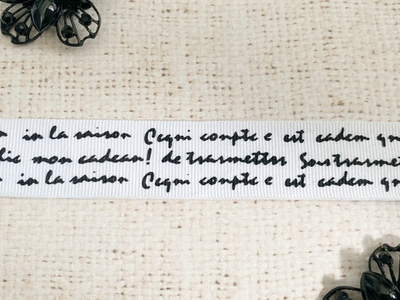 in la saison Cequi conpte e est cadem qn
lie mon cadeau! de trasmettrs Sonstrasmet
in la saison Cequi conpte e est cadem qn